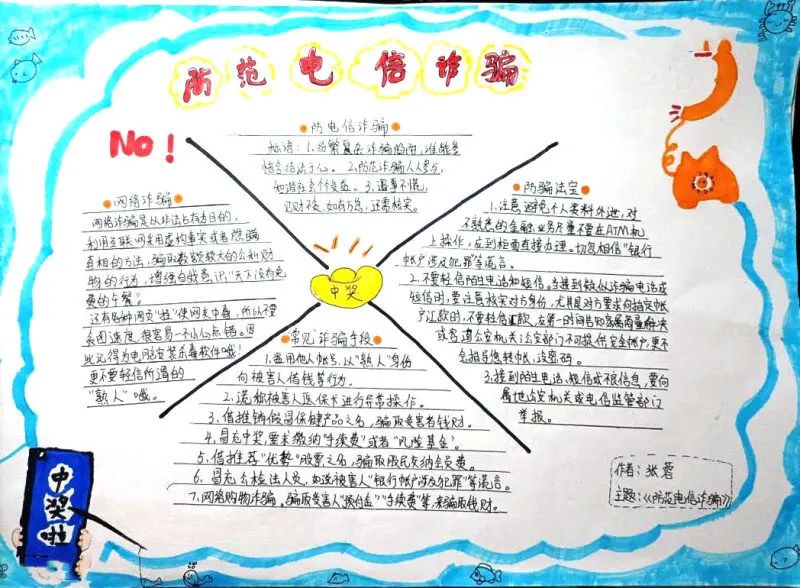 防范电信诈骗
No!
防电信诈骗
标语：1.纷繁复杂诈骗陷阱，谁能
2.防范诈骗人人参与，
3.遇事不慌，
见财不贪，如有万急，还需核实。
网络诈骗
网络诈骗是以非法占有为目的，
利用互联网采用虚构事实或者隐瞒
真相的方法，骗取数额较大的公私财
物的行为，增强自我意识“天下没有免
费的午餐”
还有多种网页“挂”使网友中毒，所以不管
关闭速度，很容易一不小心点错。因
此记得为电脑安装杀毒软件哦！
更不要轻信所谓的
“熟人”哦。
中奖
常见诈骗手段
1.盗用他人帐号，以“熟人”身份
向被害人借钱等行为。
2.谎称被害人医保卡进行异常操作。
3.借推销假冒保健产品之名，骗取受害者钱财。
4.冒充中奖，要求缴纳“手续费”或者“风险基金”。
5.借推荐“优势”股票之名，骗取股民交纳会员费。
6.冒充公检法人员，如说被害人“银行帐户涉及犯罪”等谎言。
7.网络购物诈骗，骗取受害人“预付金”“手续费”等，来骗取钱财。
防骗法宝
1.注意避免个人资料外泄，对
不熟悉的金融业务尽量不要在ATM机
上操作，应到柜面直接办理。切忽相信“银行
帐户涉及犯罪”等谎言。
2.不要轻信陌生电话和短信。当接到疑似诈骗电话或
短信时，要注意核实对方身份，尤其是对方要求向指定帐
户汇款时，不要轻信汇款，应第一时间告知家属商量解决
或咨询公安机关，公安部门不可提供安全帐户，更不
会指导您转帐、设密码。
3.接到陌生电话、短信或不良信息，要向
属地公安机关或电信监管部门
举报。
中奖啦
作者：张蓉
主题：《防范电信诈骗》